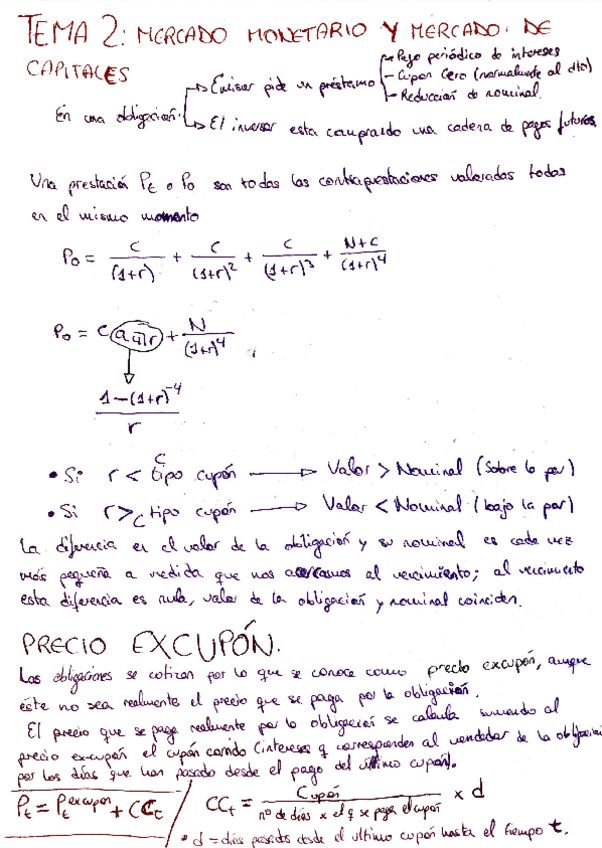 TEMA 2: MERCADO MONETARIO Y MERCADO DE
CAPITALES
En una obligación:
→ Emisor pide un préstamo
- Pago periódico de intereses
- Cupón Cero (normalmente al dto)
- Reducción de nominal.
→ El inversor esta comprando una cadena de pagos futuros
Una prestación Pt o Po son todas las contraprestaciones valoradas todas
en el mismo momento
Po = C/(1+r) + C/(1+r)² + C/(1+r)³ + N+C/(1+r)⁴
Po = C a4¬r + N/(1+r)⁴
1-(1+r)⁻⁴/r
• Si r < C tipo cupón → Valor > Nominal (sobre la par)
• Si r > C tipo cupón → Valor < Nominal (bajo la par)
La diferencia en el valor de la obligación y su nominal es cada vez
más pequeña a medida que nos acercamos al vencimiento; al vencimiento
esta diferencia es nula, valor de la obligación y nominal coinciden.
PRECIO EXCUPÓN.
Las obligaciones se cotizan por lo que se conoce como precio excupón, aunque
éste no sea realmente el precio que se paga por la obligación.
El precio que se paga realmente por la obligación se calcula sumando al
precio excupón el cupón corrido (intereses q corresponden al vendedor de la obligación
por los días que han pasado desde el pago del último cupón).
Pt = Pt excupon + CCt / CCt = Cupón/nº de días x el q se paga el cupón x d
• d = días pasados desde el ultimo cupón hasta el tiempo t.